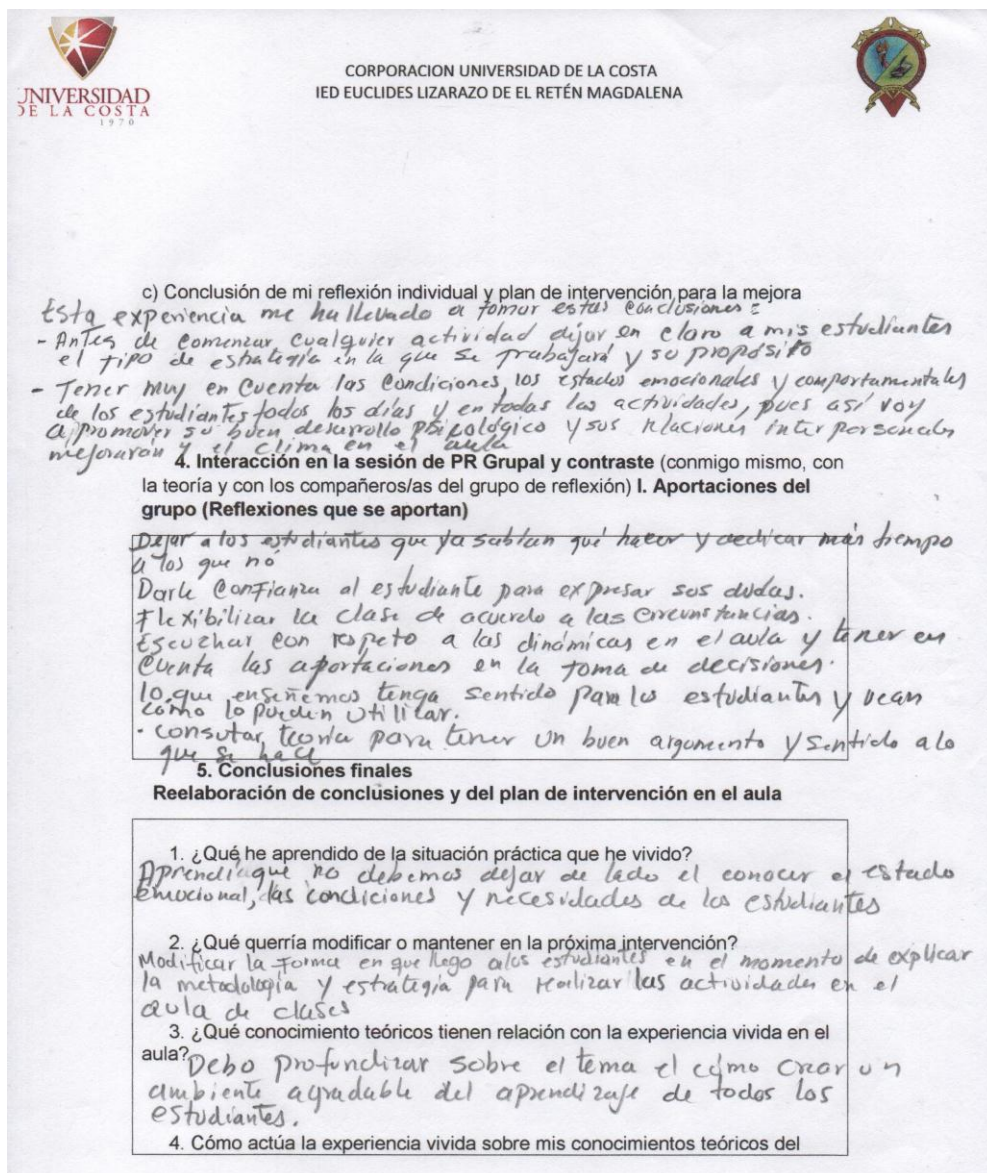 UNIVERSIDAD
DE LA COSTA
1970
CORPORACION UNIVERSIDAD DE LA COSTA
IED EUCLIDES LIZARAZO DE EL RETÉN MAGDALENA
c) Conclusión de mi reflexión individual y plan de intervención para la mejora
Esta experiencia me ha llevado a tomar estas conclusiones:
- Antes de comenzar cualquier actividad dejar en claro a mis estudiantes
el tipo de estrategia en la que se trabajará y su propósito
- Tener muy en cuenta las condiciones, los estados emocionales y comportamentales
de los estudiantes todos los días y en todas las actividades, pues así voy
a promover su buen desarrollo psicológico y sus relaciones interpersonales
mejoraran y el clima en el aula
4. Interacción en la sesión de PR Grupal y contraste (conmigo mismo, con
la teoría y con los compañeros/as del grupo de reflexión) I. Aportaciones del
grupo (Reflexiones que se aportan)
Dejar a los estudiantes que ya sabían qué hacer y dedicar más tiempo
a los que no
Darle confianza al estudiante para expresar sus dudas.
Flexibilizar la clase de acuerdo a las circunstancias.
Escuchar con respeto a las dinámicas en el aula y tener en
cuenta las aportaciones en la toma de decisiones.
lo que enseñemos tenga sentido para los estudiantes y vean
como lo pueden utilizar.
- consutar teoría para tener un buen argumento y sentido a lo
que se hace
5. Conclusiones finales
Reelaboración de conclusiones y del plan de intervención en el aula
1. ¿Qué he aprendido de la situación práctica que he vivido?
Aprendí que no debemos dejar de lado el conocer el estado
emocional, las condiciones y necesidades de los estudiantes
2. ¿Qué querría modificar o mantener en la próxima intervención?
Modificar la forma en que llego a los estudiantes en el momento de explicar
la metodología y estrategia para realizar las actividades en el
aula de clases
3. ¿Qué conocimiento teóricos tienen relación con la experiencia vivida en el
aula? Debo profundizar sobre el tema el cómo crear un
ambiente agradable del aprendizaje de todos los
estudiantes.
4. Cómo actúa la experiencia vivida sobre mis conocimientos teóricos del